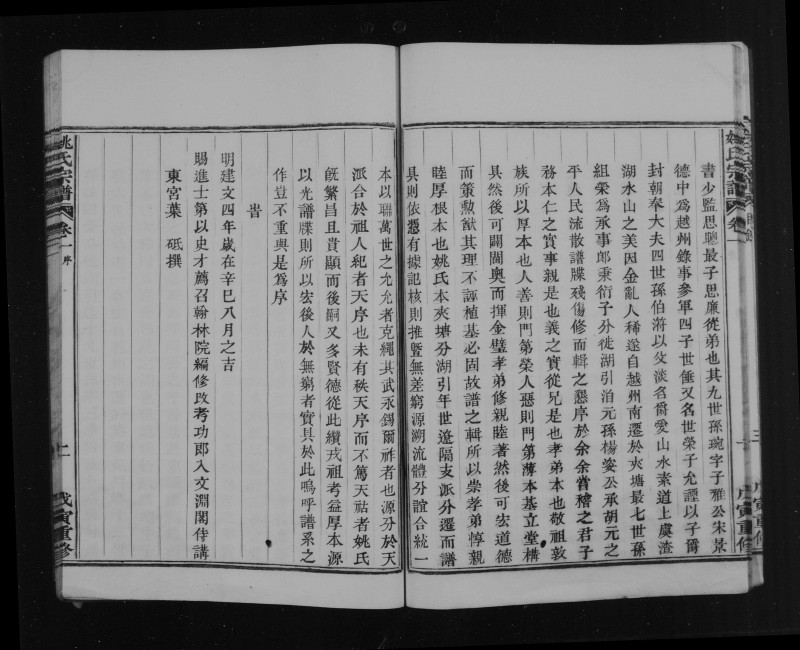 書少監思聰最子思廉從弟也其九世孫琬字子雅公宋景
德中爲越州錄事參軍四子世倕又名世榮子允諲以子爵
封朝奉大夫四世孫伯將以父淡名爵愛山水素道上虞渣
湖水山之美因金亂人稀遂自越州南遷於夾塘最七世孫
組榮爲承事郎秉衍子外徙湖引泊元孫楊娑公承胡元之
平人民流散譜牒殘傷修而輯之懇序於余余嘗稽之君子
務本仁之實事親是也義之實從兄是也孝弟本也敬祖敦
族所以厚本也人善則門第榮人惡則門第薄本基立堂構
具然後可闢閫奧而揮金璧孝弟修親睦著然後可宏道德
而策勲猷其理不誣植基必固故譜之輯所以崇孝弟惇親
睦厚根本也姚氏本夾塘分湖引年世遼隔支派分遷而譜
具則依憑有據記核則推暨無差窮源溯流體分誼合統一
本以聯萬世之尤尤者克繩其武永錫爾祚者也源分於天
派合於祖人紀者天序也未有秩天序而不篤天祜者姚氏
既繁昌且貴顯而後嗣又多賢德從此纘戎祖考益厚本源
以光譜牒則所以宏後人於無窮者實具於此嗚呼譜系之
作豈不重與是爲序
旹
明建文四年歲在辛巳八月之吉
賜進士第以史才薦召翰林院編修改考功郎入文淵閣侍講
東宮葉　砥撰
姚氏宗譜
卷一
序
戊寅重修
姚氏宗譜
卷一
戊寅重修